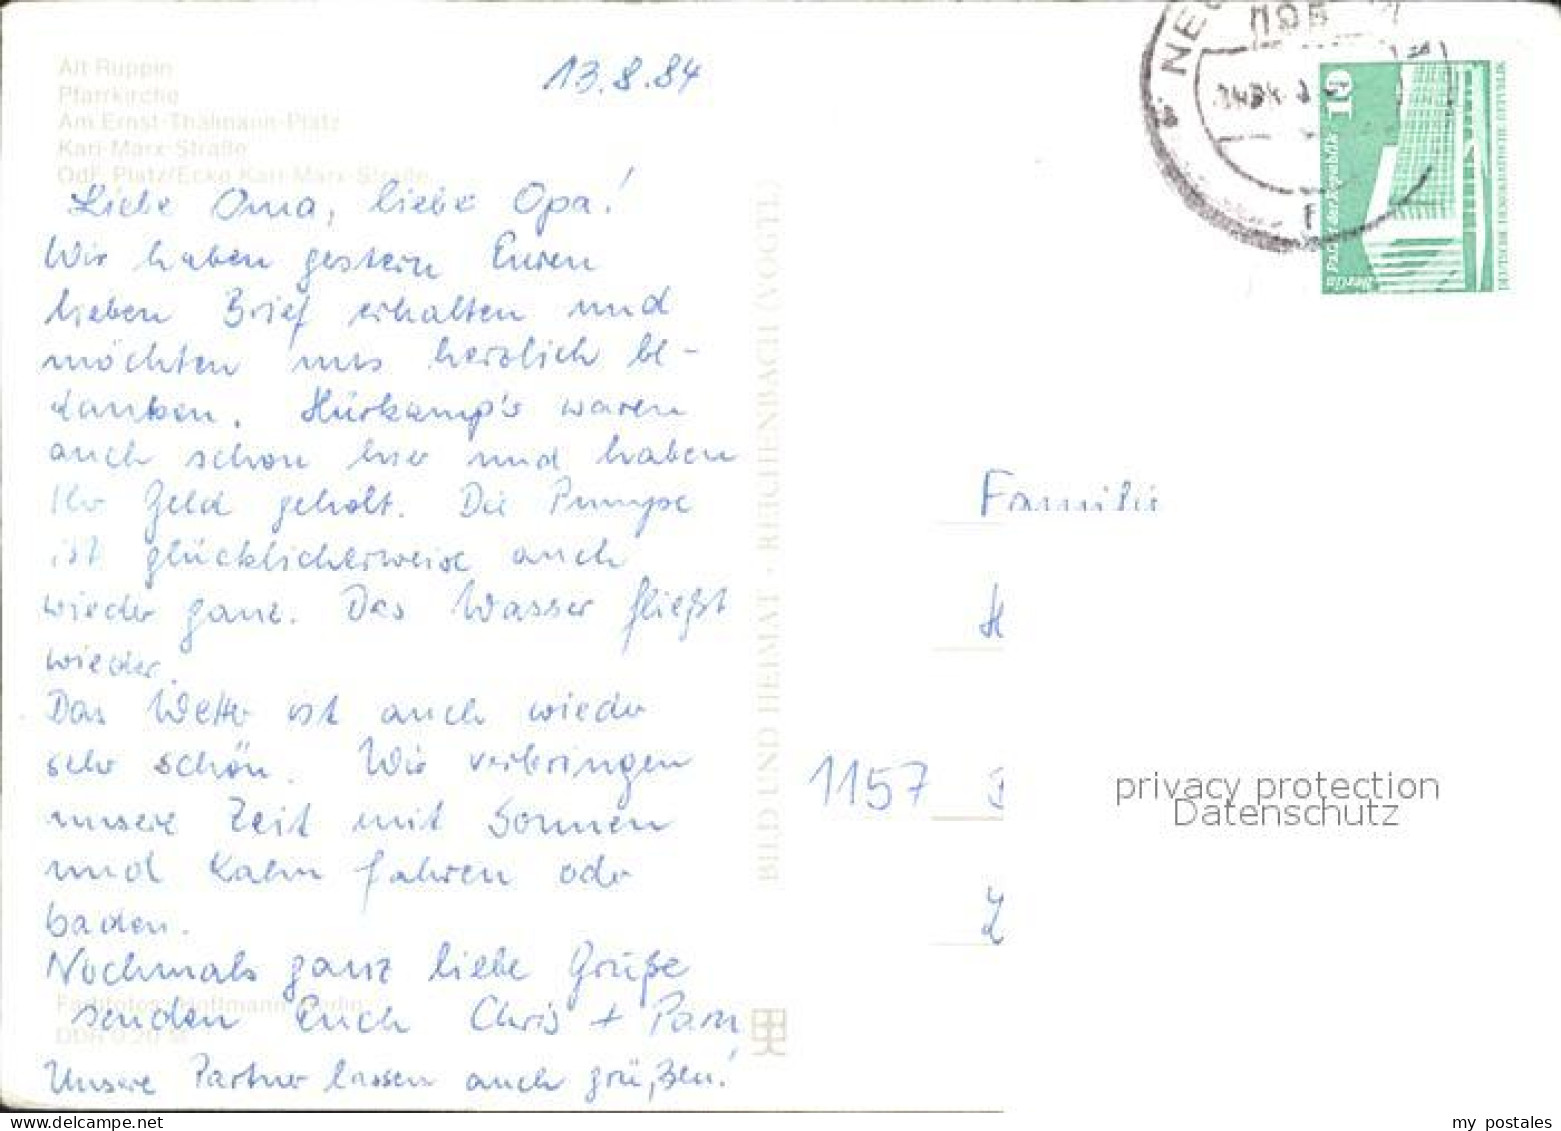 Alt Ruppin
Pfarrkirche
Am Ernst-Thälmann-Platz
Karl-Marx-Straße
OdF-Platz/Ecke Karl-Marx-Straße
13.8.84
Liebe Oma, liebe Opa!
Wir haben gestern Euren
lieben Brief erhalten und
möchten uns herzlich be-
danken. Hürkamp's waren
auch schon hier und haben
Ihr Geld geholt. Die Pumpe
ist glücklicherweise auch
wieder ganz. Das Wasser fließt
wieder.
Das Wetter ist auch wieder
sehr schön. Wir verbringen
unsere Zeit mit Sonnen
und Kahn fahren oder
baden.
Nochmals ganz liebe Grüße
senden Euch Chris + Pam
Unsere Partner lassen auch grüßen!
Farbfotos: Hoffmann, Berlin
DDR 0,20 M
BILD UND HEIMAT · REICHENBACH (VOGTL)
NEU
10
Berlin Palast der Republik
DEUTSCHE DEMOKRATISCHE REPUBLIK
Familie
H
1157
privacy protection
Datenschutz
my postales